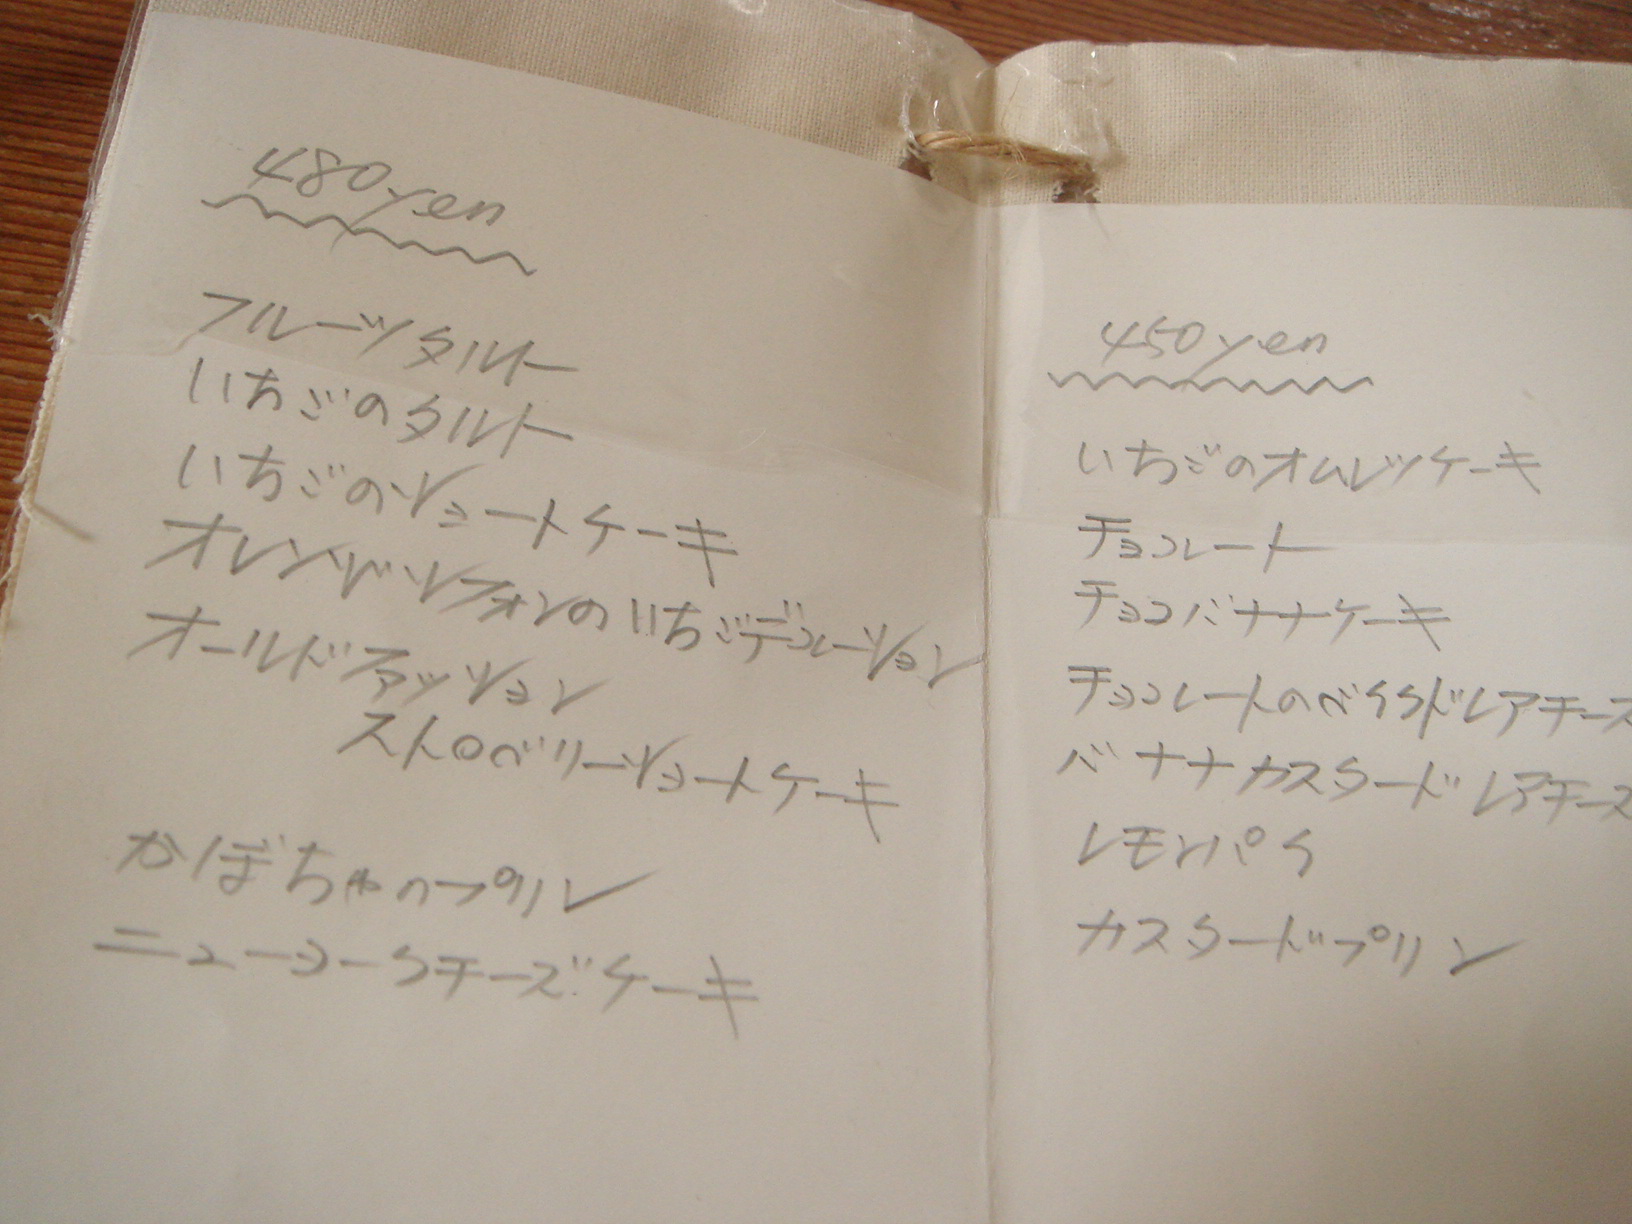 480yen
フルーツタルト
いちごのタルト
いちごのショートケーキ
オレンジシフォンのいちごデコレーション
オールドファッション
ストロベリーショートケーキ
かぼちゃのプリン
ニューヨークチーズケーキ
450yen
いちごのオムレツケーキ
チョコレート
チョコバナナケーキ
チョコレートのベイクドレアチーズ
バナナカスタードレアチーズ
レモンパイ
カスタードプリン